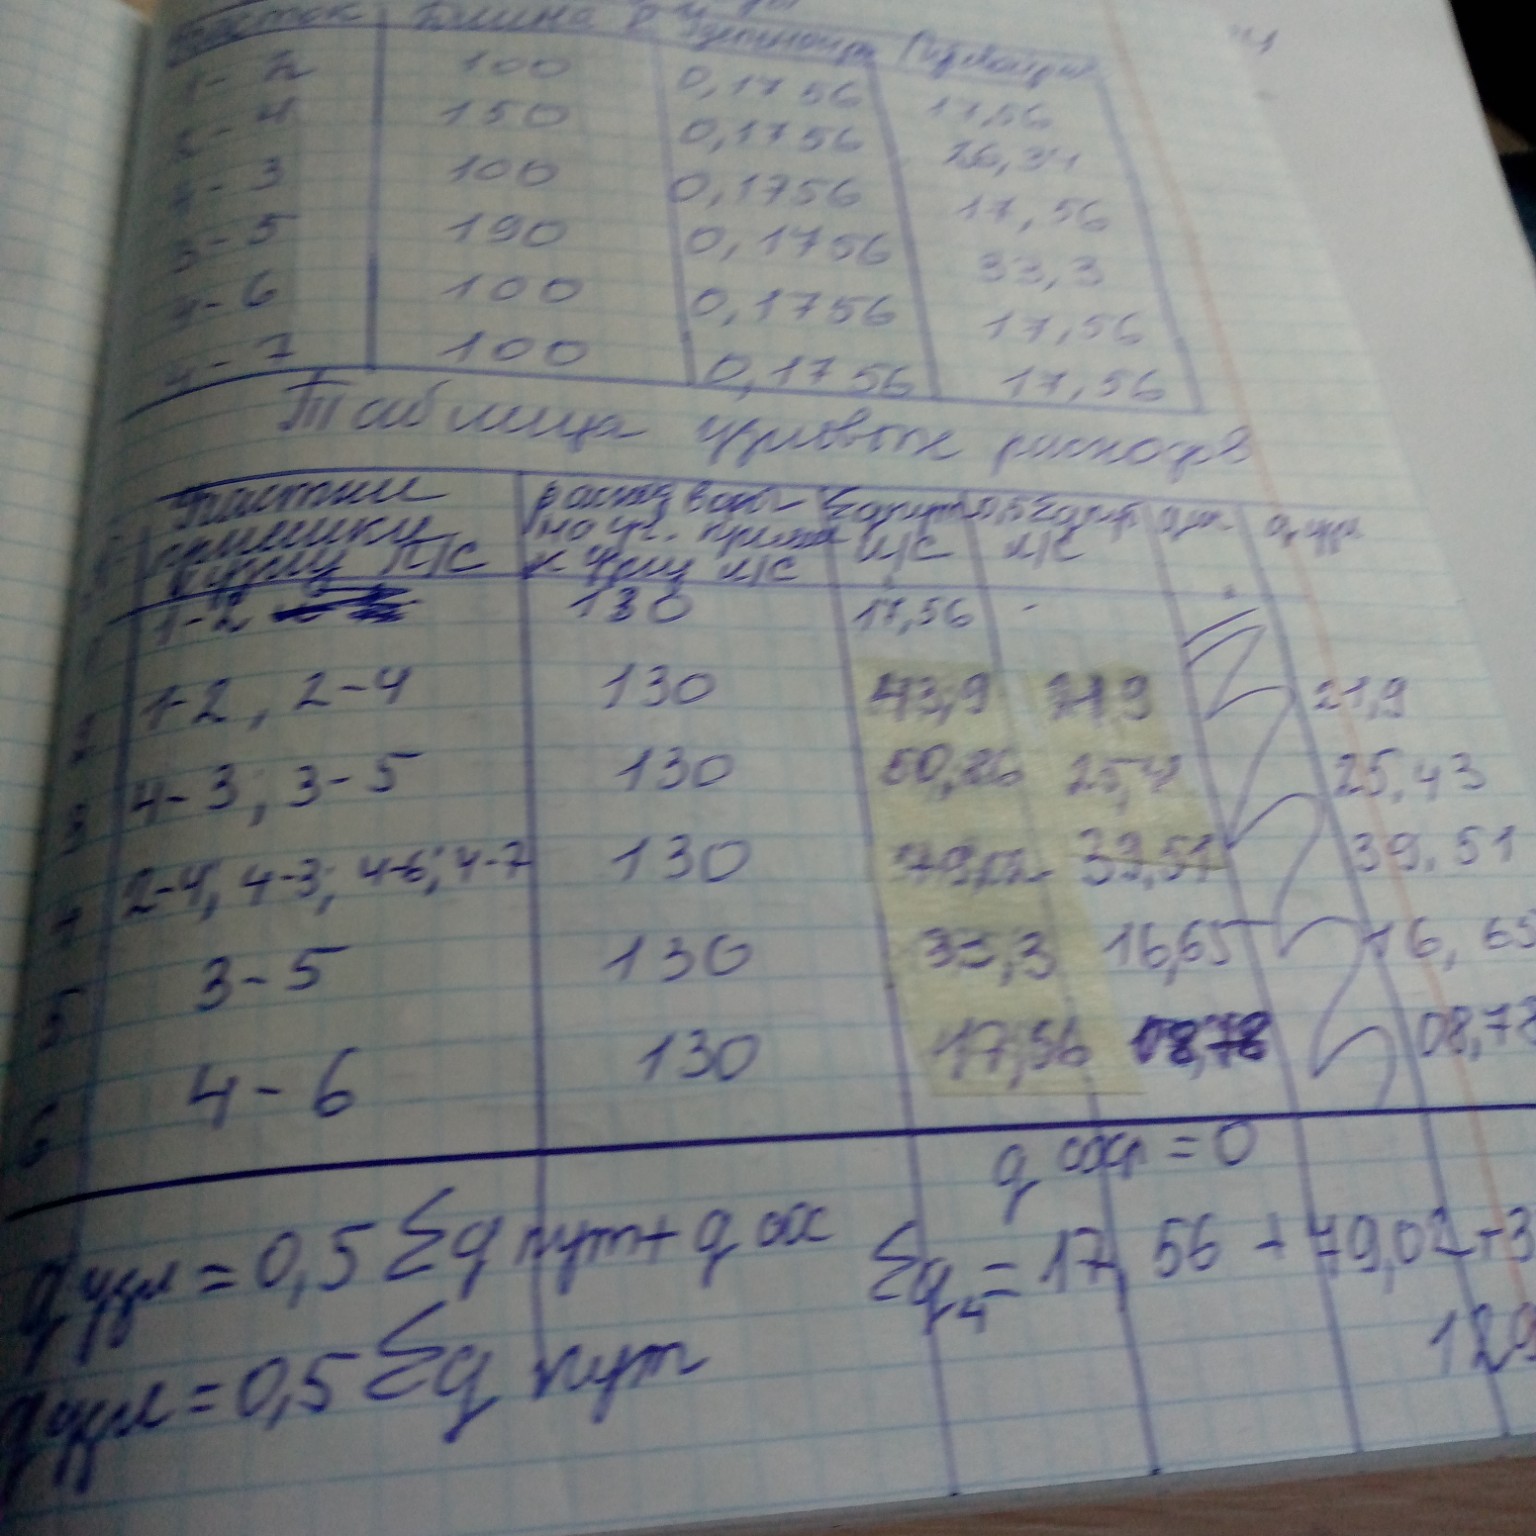 Участок Длина Удельный Путевой
1-2 100 0,1756 17,56
2-4 150 0,1756 26,34
4-3 100 0,1756 17,56
3-5 190 0,1756 33,3
4-6 100 0,1756 17,56
4-7 100 0,1756 17,56
Таблица узловых расходов
Участки расход воды Σqпут 0,5Σqпут q узл
к узлу л/с к узлу л/с л/с л/с
1-2 130 17,56 -
2 1-2, 2-4 130 43,9 21,9 21,9
3 4-3; 3-5 130 50,86 25,4 25,43
4 2-4; 4-3; 4-6; 4-7 130 79,02 39,51 39.51
5 3-5 130 33,3 16,65 16,65
6 4-6 130 17,56 08,78 08,78
q соср = 0
q узл = 0,5 Σq пут + q
Σq4 = 17 56 + 79,02 + 3
q узл = 0,5 Σq пут
129